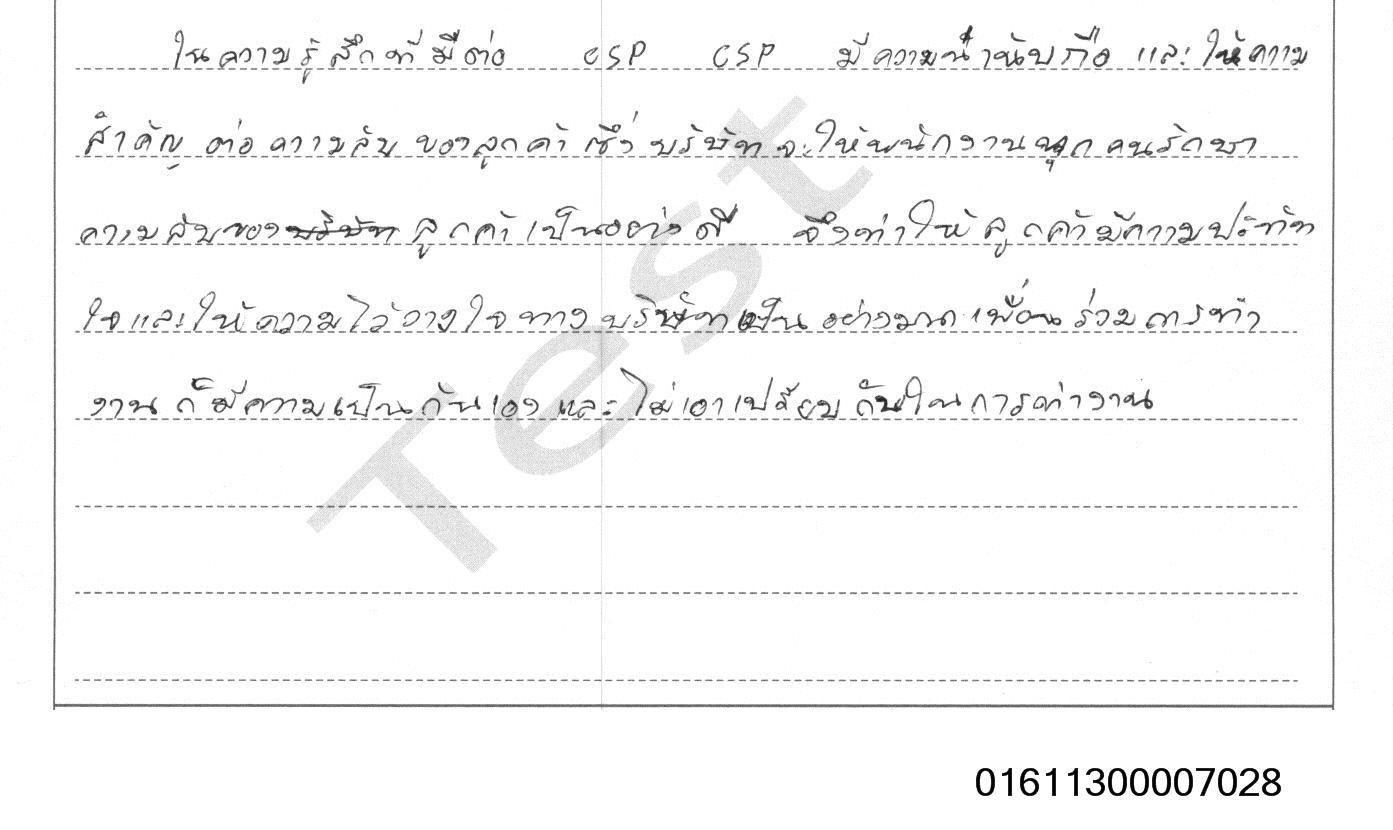 ในความรู้สึกที่มีต่อ CSP CSP มีความน่านับถือ และให้ความ
สำคัญ ต่อ ความลับ ของลูกค้า ซึ่ง บริษัท จะให้พนักงานทุกคนรักษา
ความลับของบริษัท ลูกค้าเป็นอย่างดี จึงทำให้ลูกค้ามีความประทับ
ใจและให้ความไว้วางใจทางบริษัทเป็นอย่างมาก เพื่อนร่วมการทำ
งานก็มีความเป็นกันเอง และไม่เอาเปรียบกันในการทำงาน
Test
01611300007028